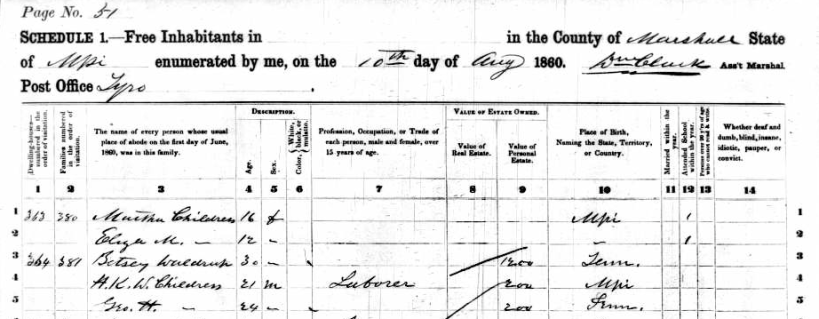 Page No. 51
SCHEDULE 1.—Free Inhabitants in in the County of Marshall State
of Mpi enumerated by me, on the 10th day of Aug 1860. Ass't Marshal
Post Office Tyro.
DESCRIPTION. VALUE OF ESTATE OWNED.
Dwelling-houses—numbered in the order of visitation.
Families numbered in the order of visitation.
The name of every person whose usual place of abode on the first day of June, 1860, was in this family.
Age.
Sex.
Color, { White, black, or mulatto.
Profession, Occupation, or Trade of each person, male and female, over 15 years of age.
Value of Real Estate.
Value of Personal Estate.
Place of Birth, Naming the State, Territory, or Country.
Married within the year.
Attended School within the year.
Persons over 20 y'rs of age who cannot read & write.
Whether deaf and dumb, blind, insane, idiotic, pauper, or convict.
1 2 3 4 5 6 7 8 9 10 11 12 13 14
1 363 380 Martha Childress 16 f Mpi 1 1
2 Eliza M. — 12 — — 1 2
3 364 381 Betsey Waldrup 30 — 1200 Tenn. 3
4 H. K. W. Childress 21 m Laborer 200 Mpi 4
5 Geo. H. — 24 — 200 Tenn. 5